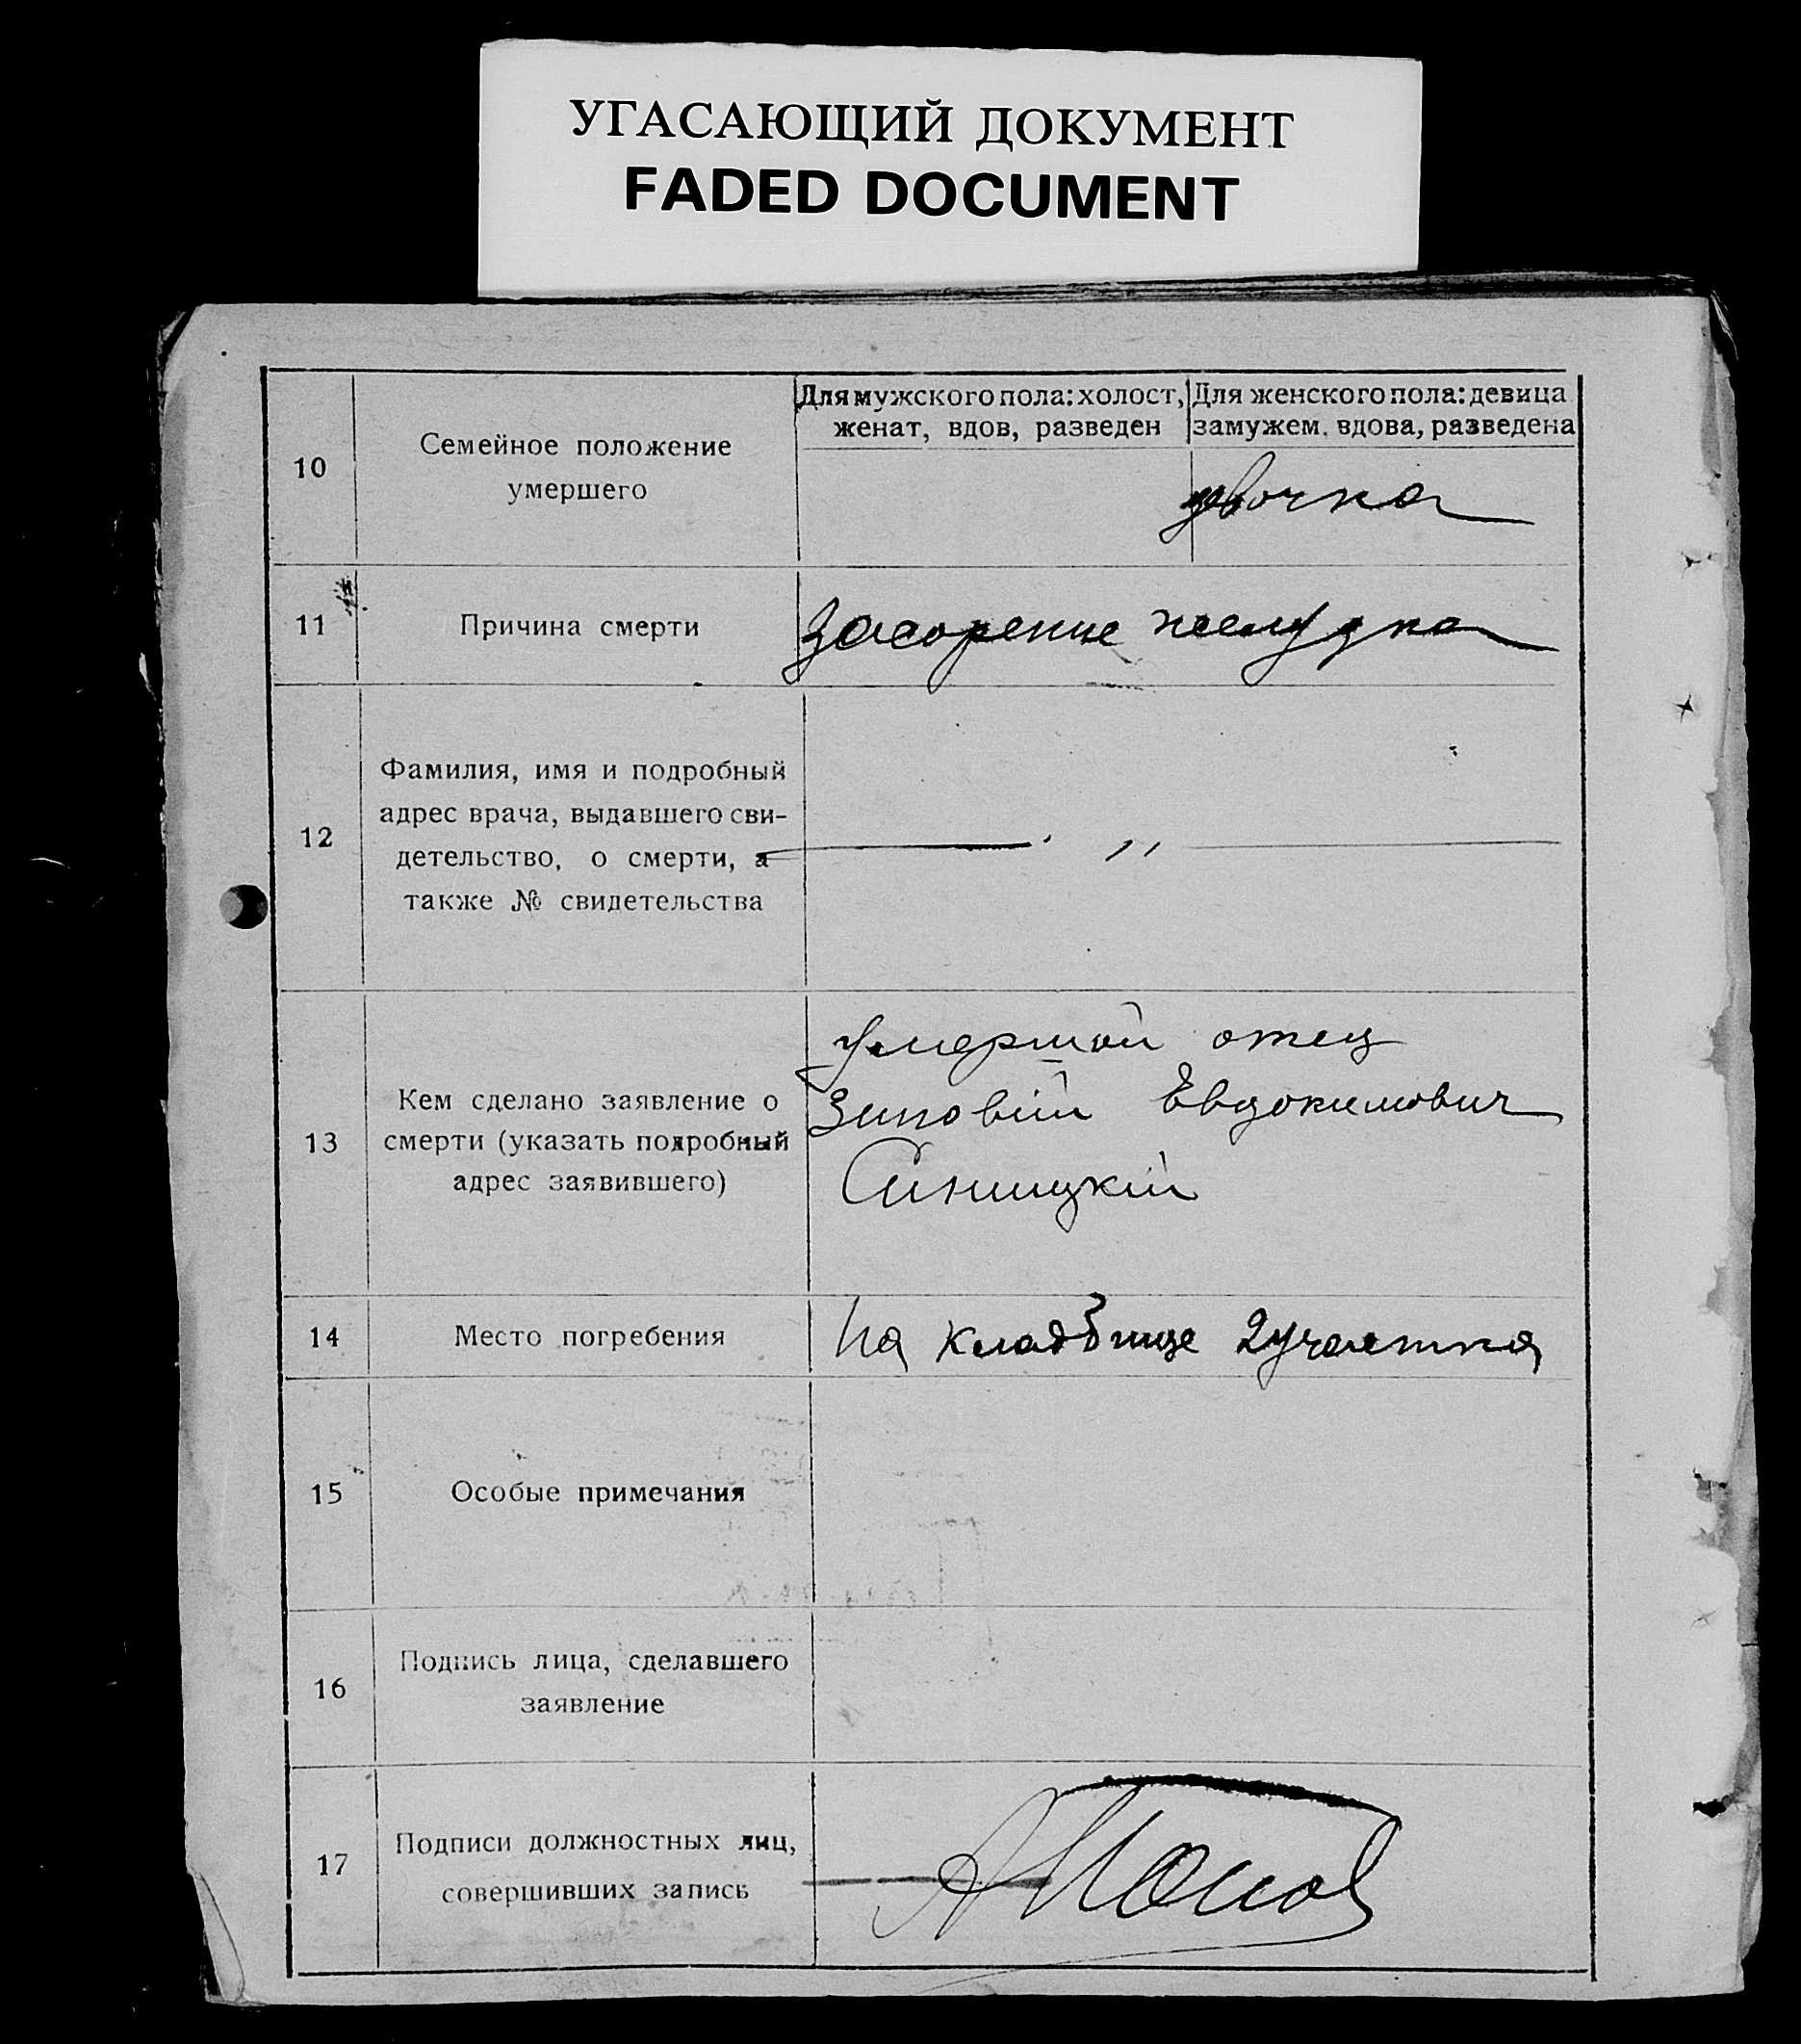 УГАСАЮЩИЙ ДОКУМЕНТ
FADED DOCUMENT
10
Семейное положение
умершего
Для мужского пола: холост,
женат, вдов, разведен
Для женского пола: девица
замужем, вдова, разведена
11
Причина смерти
засорение желудка
12
Фамилия, имя и подробный
адрес врача, выдавшего сви-
детельство, о смерти, а
также № свидетельства
— „ —
13
Кем сделано заявление о
смерти (указать подробный
адрес заявившего)
умершой отец
Зиновій Евдокимович
Синицкій
14
Место погребения
На кладбище 2 участка
15
Особые примечания
16
Подпись лица, сделавшего
заявление
17
Подписи должностных лиц,
совершивших запись